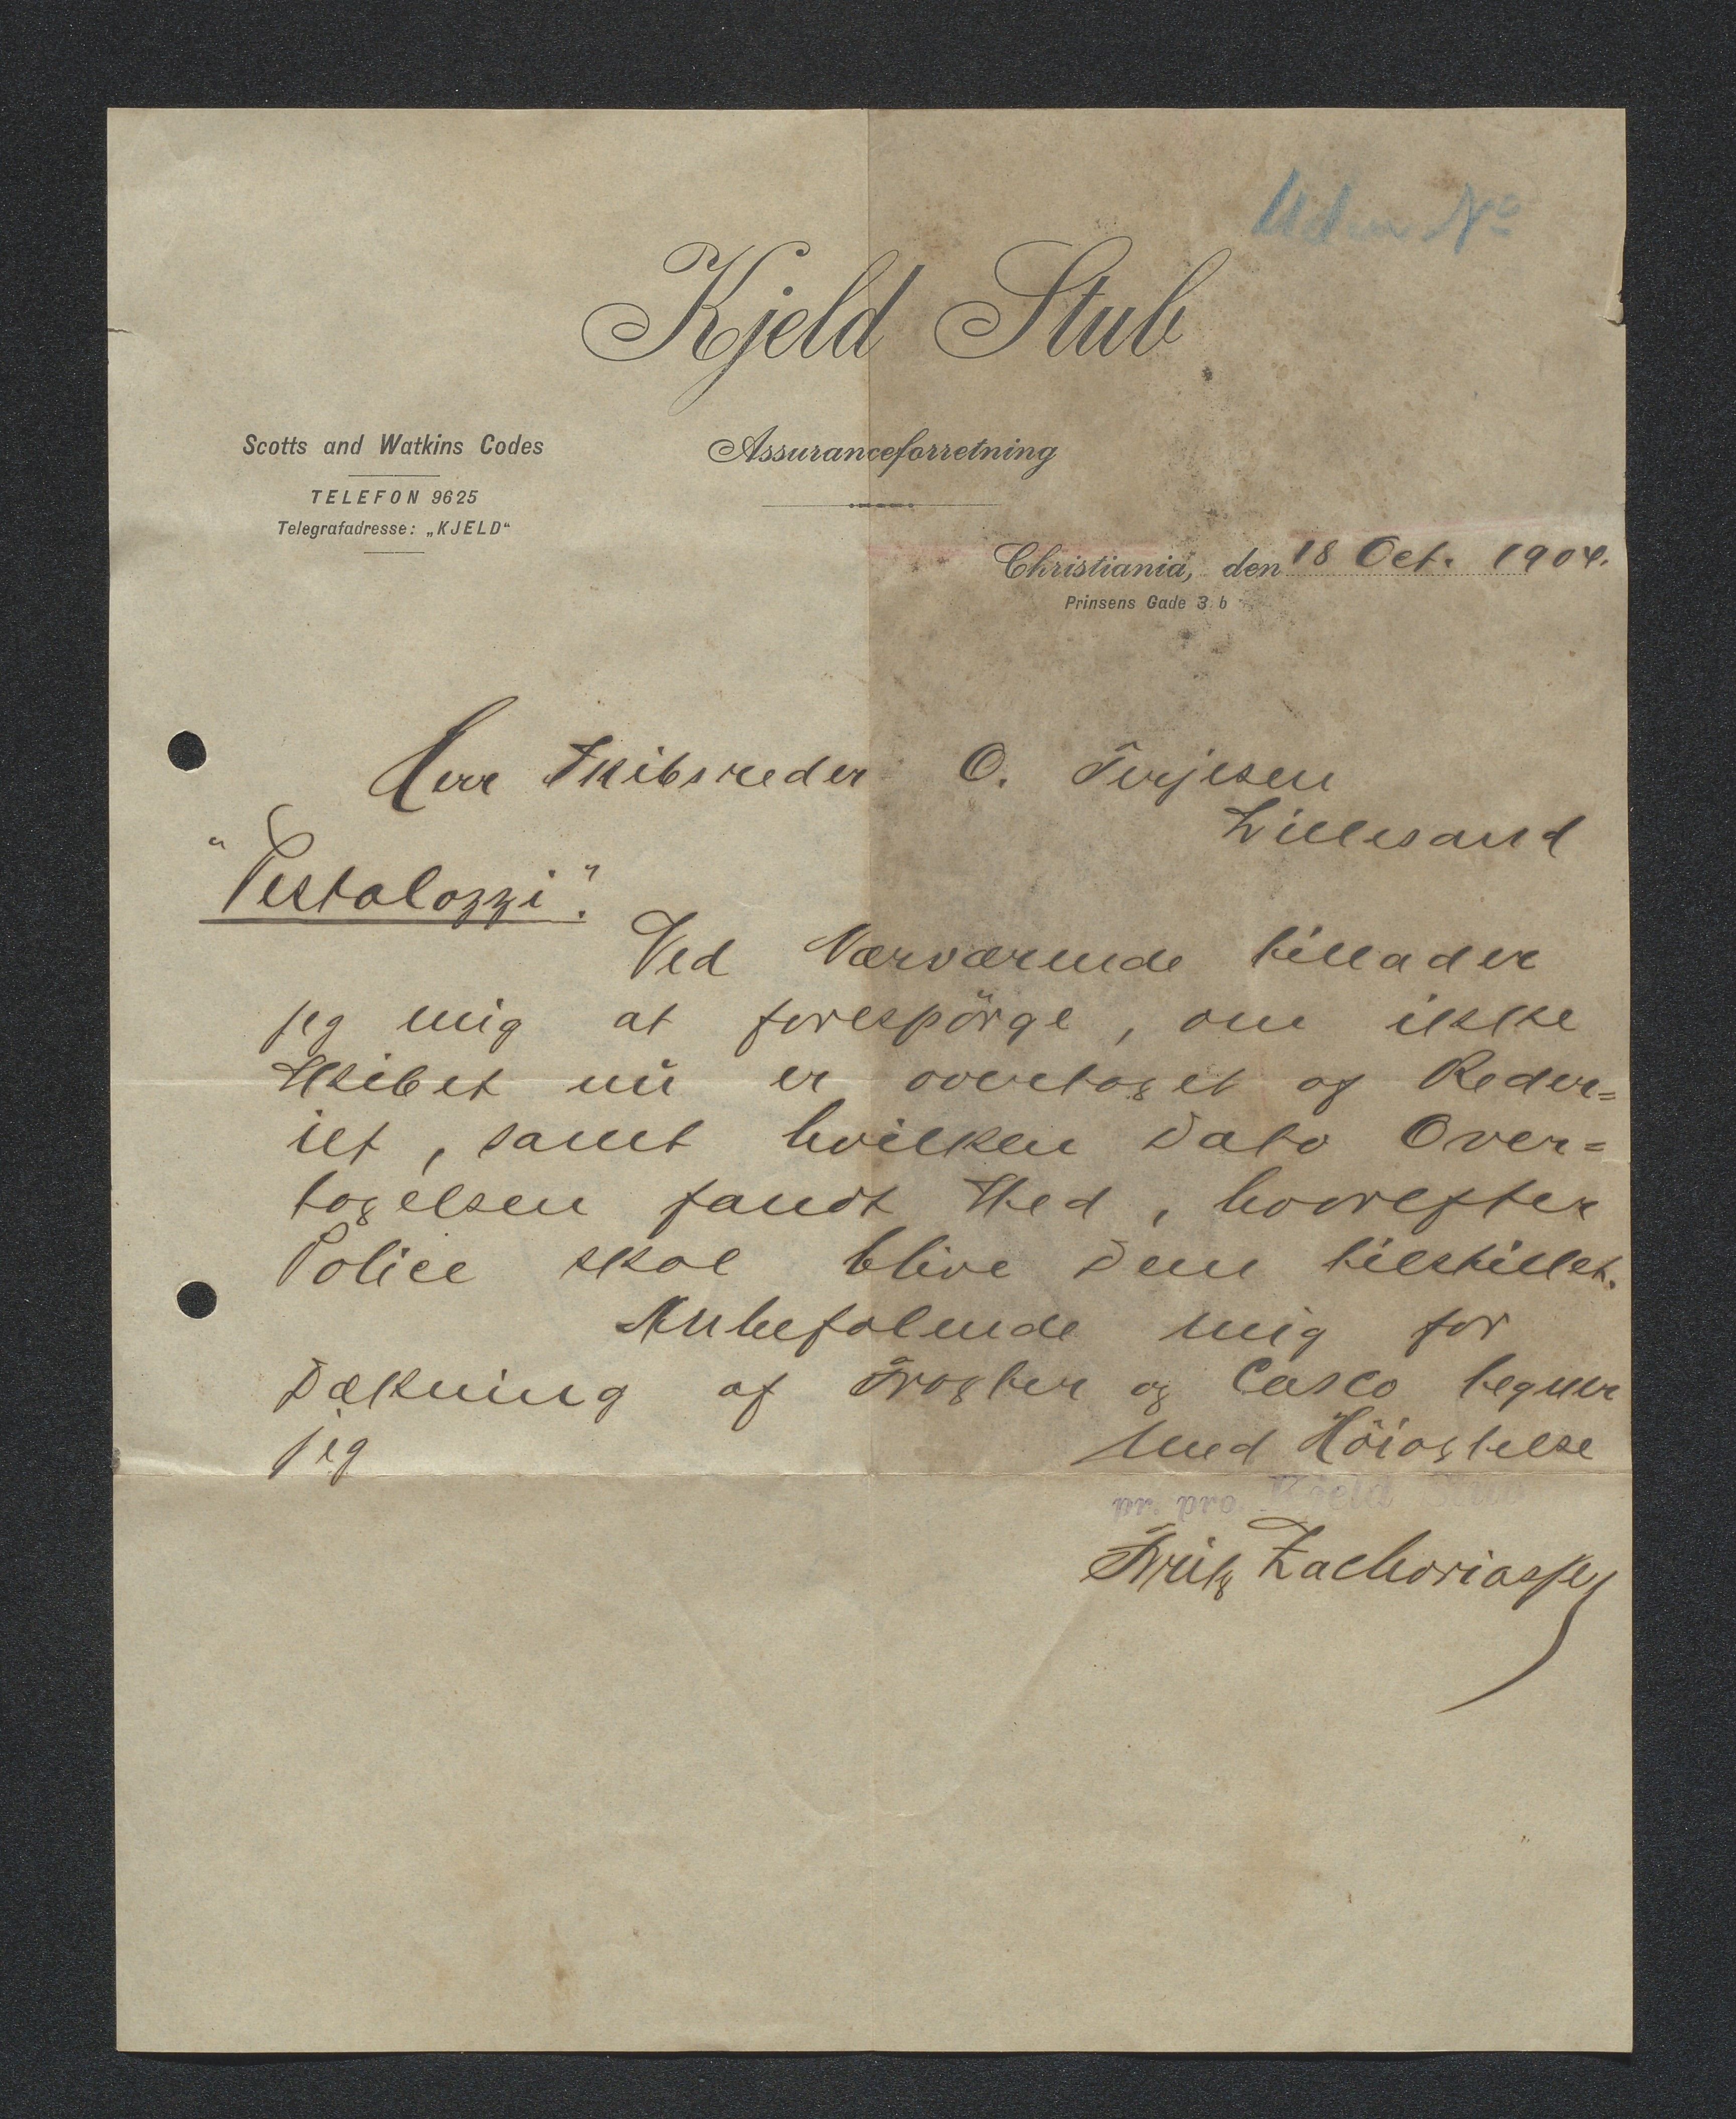 Uden No
Kjeld Stub
Scotts and Watkins Codes
Assuranceforretning
TELEFON 9625
Telegrafadresse: „KJELD“
Christiania, den 18 Oct. 1904.
Prinsens Gade 3 b
Herr Skibsreder O. Terjesen
Lillesand
"Pestalozzi".
Ved Nærværende tillader
jeg mig at forespörge, om ikke
Skibet nu er overtaget af Reder=
iet, samt hvilken Dato Over=
tagelsen fandt Sted, hvorefter
Police skal blive Dem tilstillet.
Anbefalende mig for
Dækning af Fragter og Casco tegner
jeg
Med Höiagtelse
pr. pro. Kjeld Stub
Fritz Zachariassen